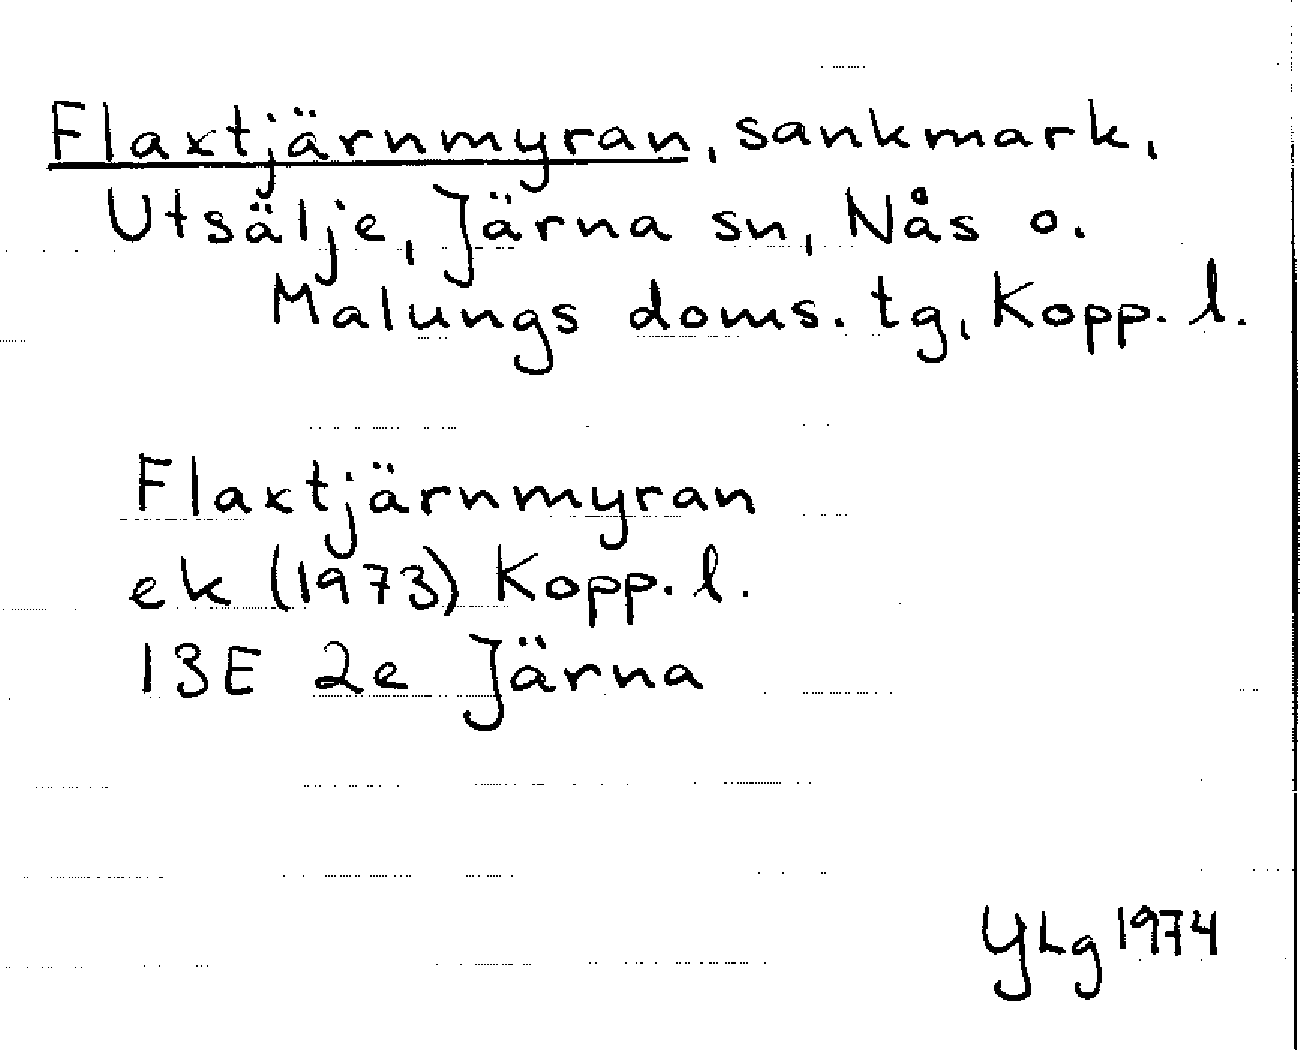 Flaxtjärnmyran, sankmark,
Utsälje, Järna sn, Nås o.
Malungs doms. tg, Kopp. l.
Flaxtjärnmyran
ek (1973) Kopp. l.
13E 2e Järna
YLg 1974